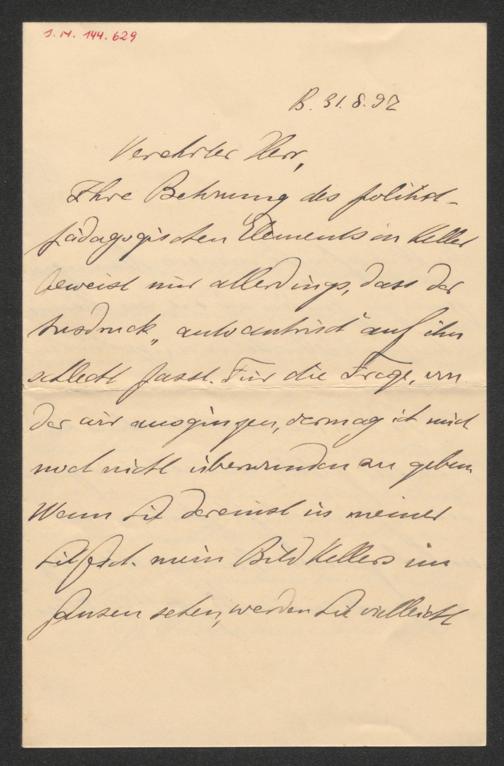 J.N. 144.629
B. 31.8.97
Verehrter Herr,
Ihre Betonung des politisch-
pädagogischen Elements in Keller
beweist mir allerdings, dass der
Ausdruck „autocentrisch" auf ihn
schlecht passt. Für die Frage, von
der wir ausgingen, vermag ich mich
noch nicht überwunden zu geben.
Wenn Sie dereinst in meiner
mein Bild Kellers im
Ganzen sehen, werden Sie vielleicht